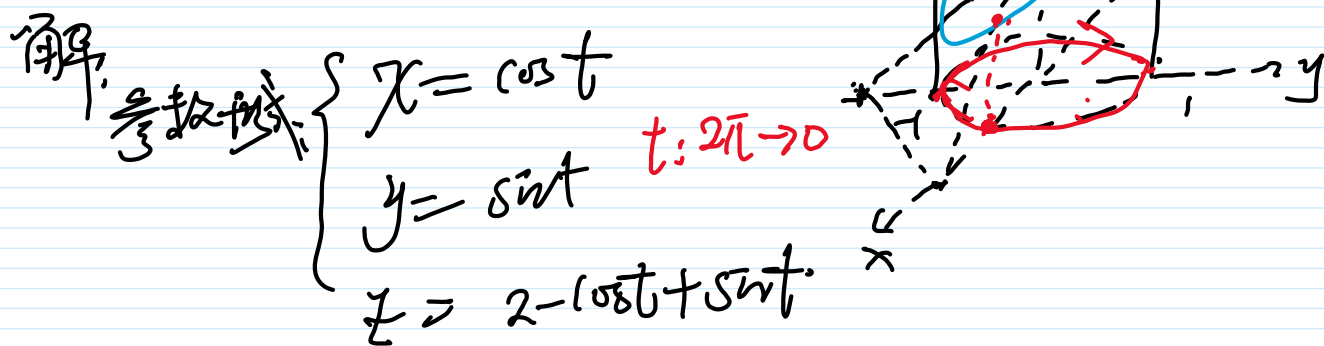 解:
参数方程:
x = cos t
y = sin t
z = 2 - cos t + sin t.
t: 2π → 0
y
1
x